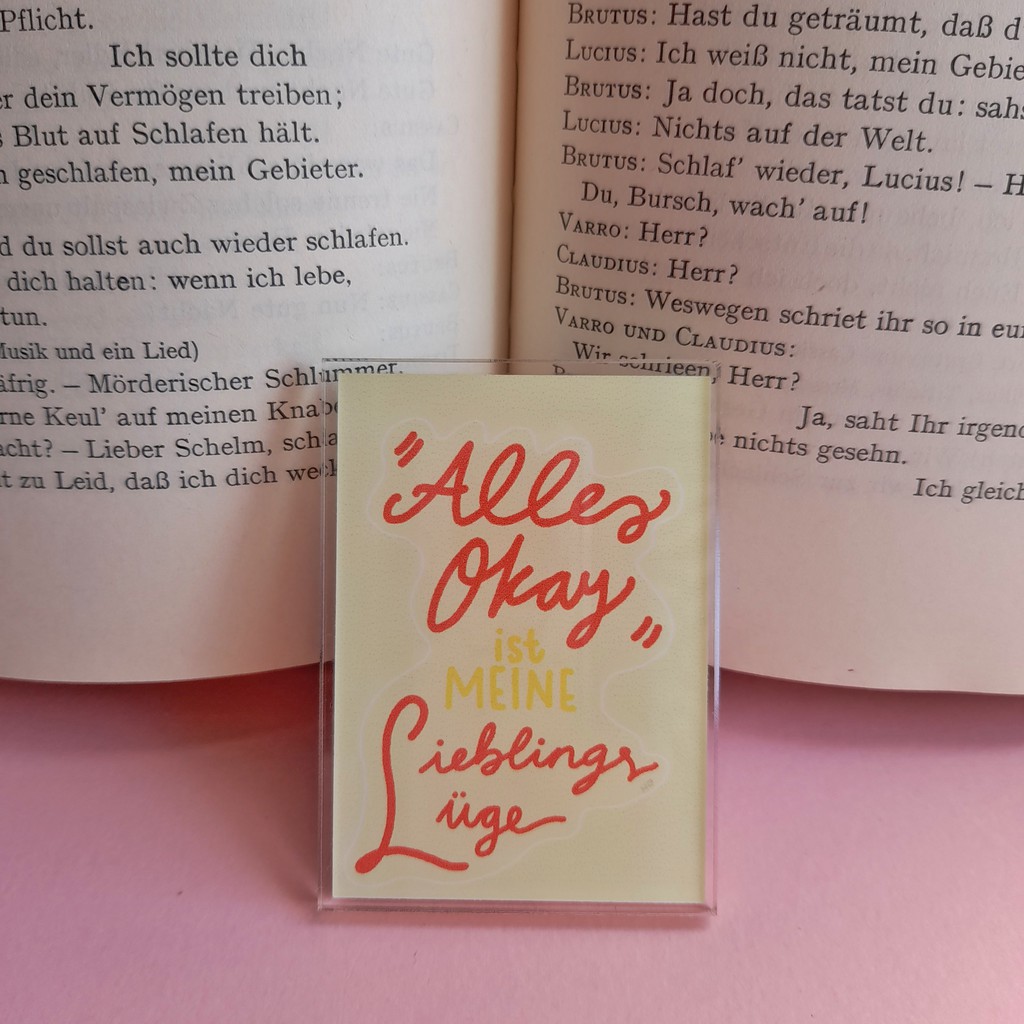 Pflicht.
Ich sollte dich
dein Vermögen treiben;
Blut auf Schlafen hält.
geschlafen, mein Gebieter.
du sollst auch wieder schlafen.
dich halten: wenn ich lebe,
tun.
Musik und ein Lied)
– Mörderischer Schlummer.
Keul' auf meinen
– Lieber Schelm,
zu Leid, daß ich dich
BRUTUS: Hast du geträumt, daß
LUCIUS: Ich weiß nicht, mein
BRUTUS: Ja doch, das tatst du:
LUCIUS: Nichts auf der Welt.
BRUTUS: Schlaf' wieder, Lucius! –
Du, Bursch, wach' auf!
VARRO: Herr?
CLAUDIUS: Herr?
BRUTUS: Weswegen schriet ihr so in
VARRO UND CLAUDIUS:
Wir schrieen, Herr?
Ja, saht Ihr
nichts gesehn.
Ich
"Alles
Okay"
ist
MEINE
Lieblings
Lüge